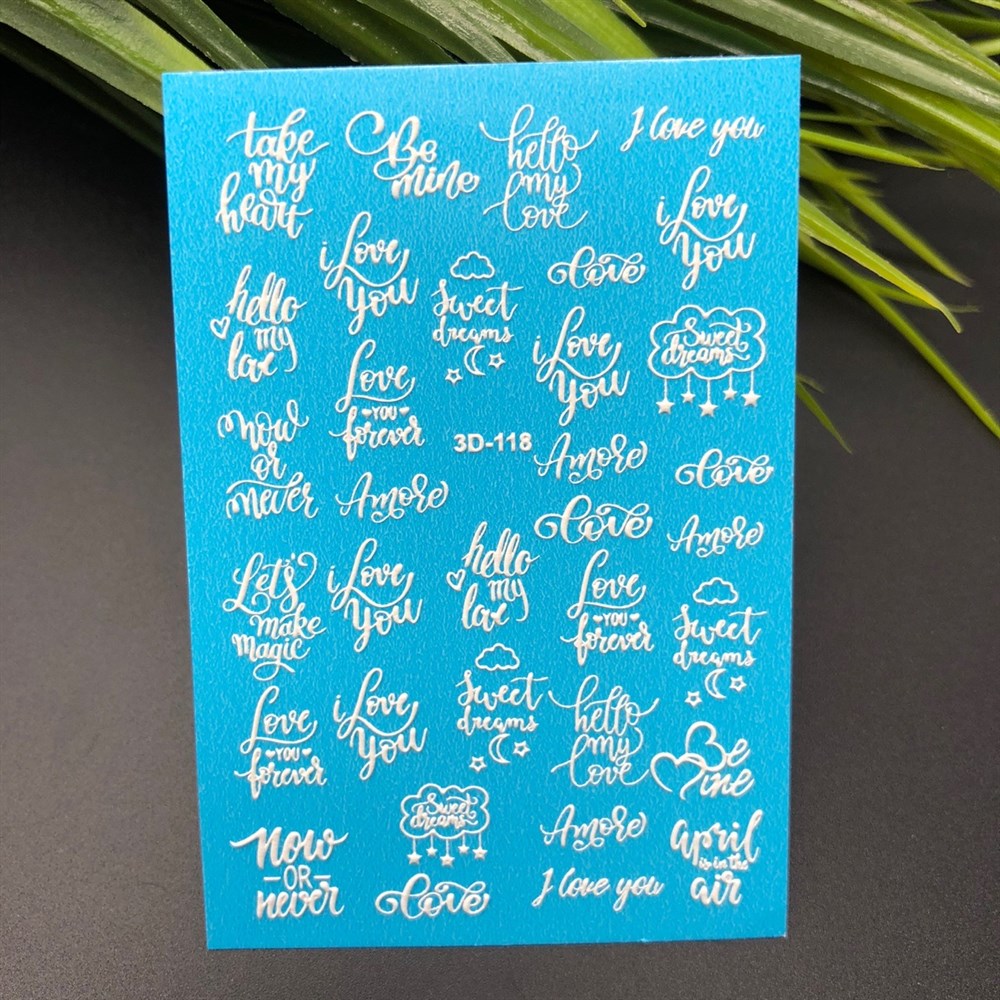 take
my
heart
Be
mine
hello
my
love
I love you
i Love
You
i Love
You
Love
Sweet
dreams
hello
my
love
i Love
You
Sweet
dreams
Love
YOU
forever
now
or
never
3D-118
Amore
Love
Amore
Love
Amore
hello
my
love
Let's
make
magic
i Love
You
Love
YOU
forever
Sweet
dreams
Love
YOU
forever
i Love
You
Sweet
dreams
hello
my
love
Be
mine
Sweet
dreams
Amore
now
OR
never
april
is in the
air
Love
I love you